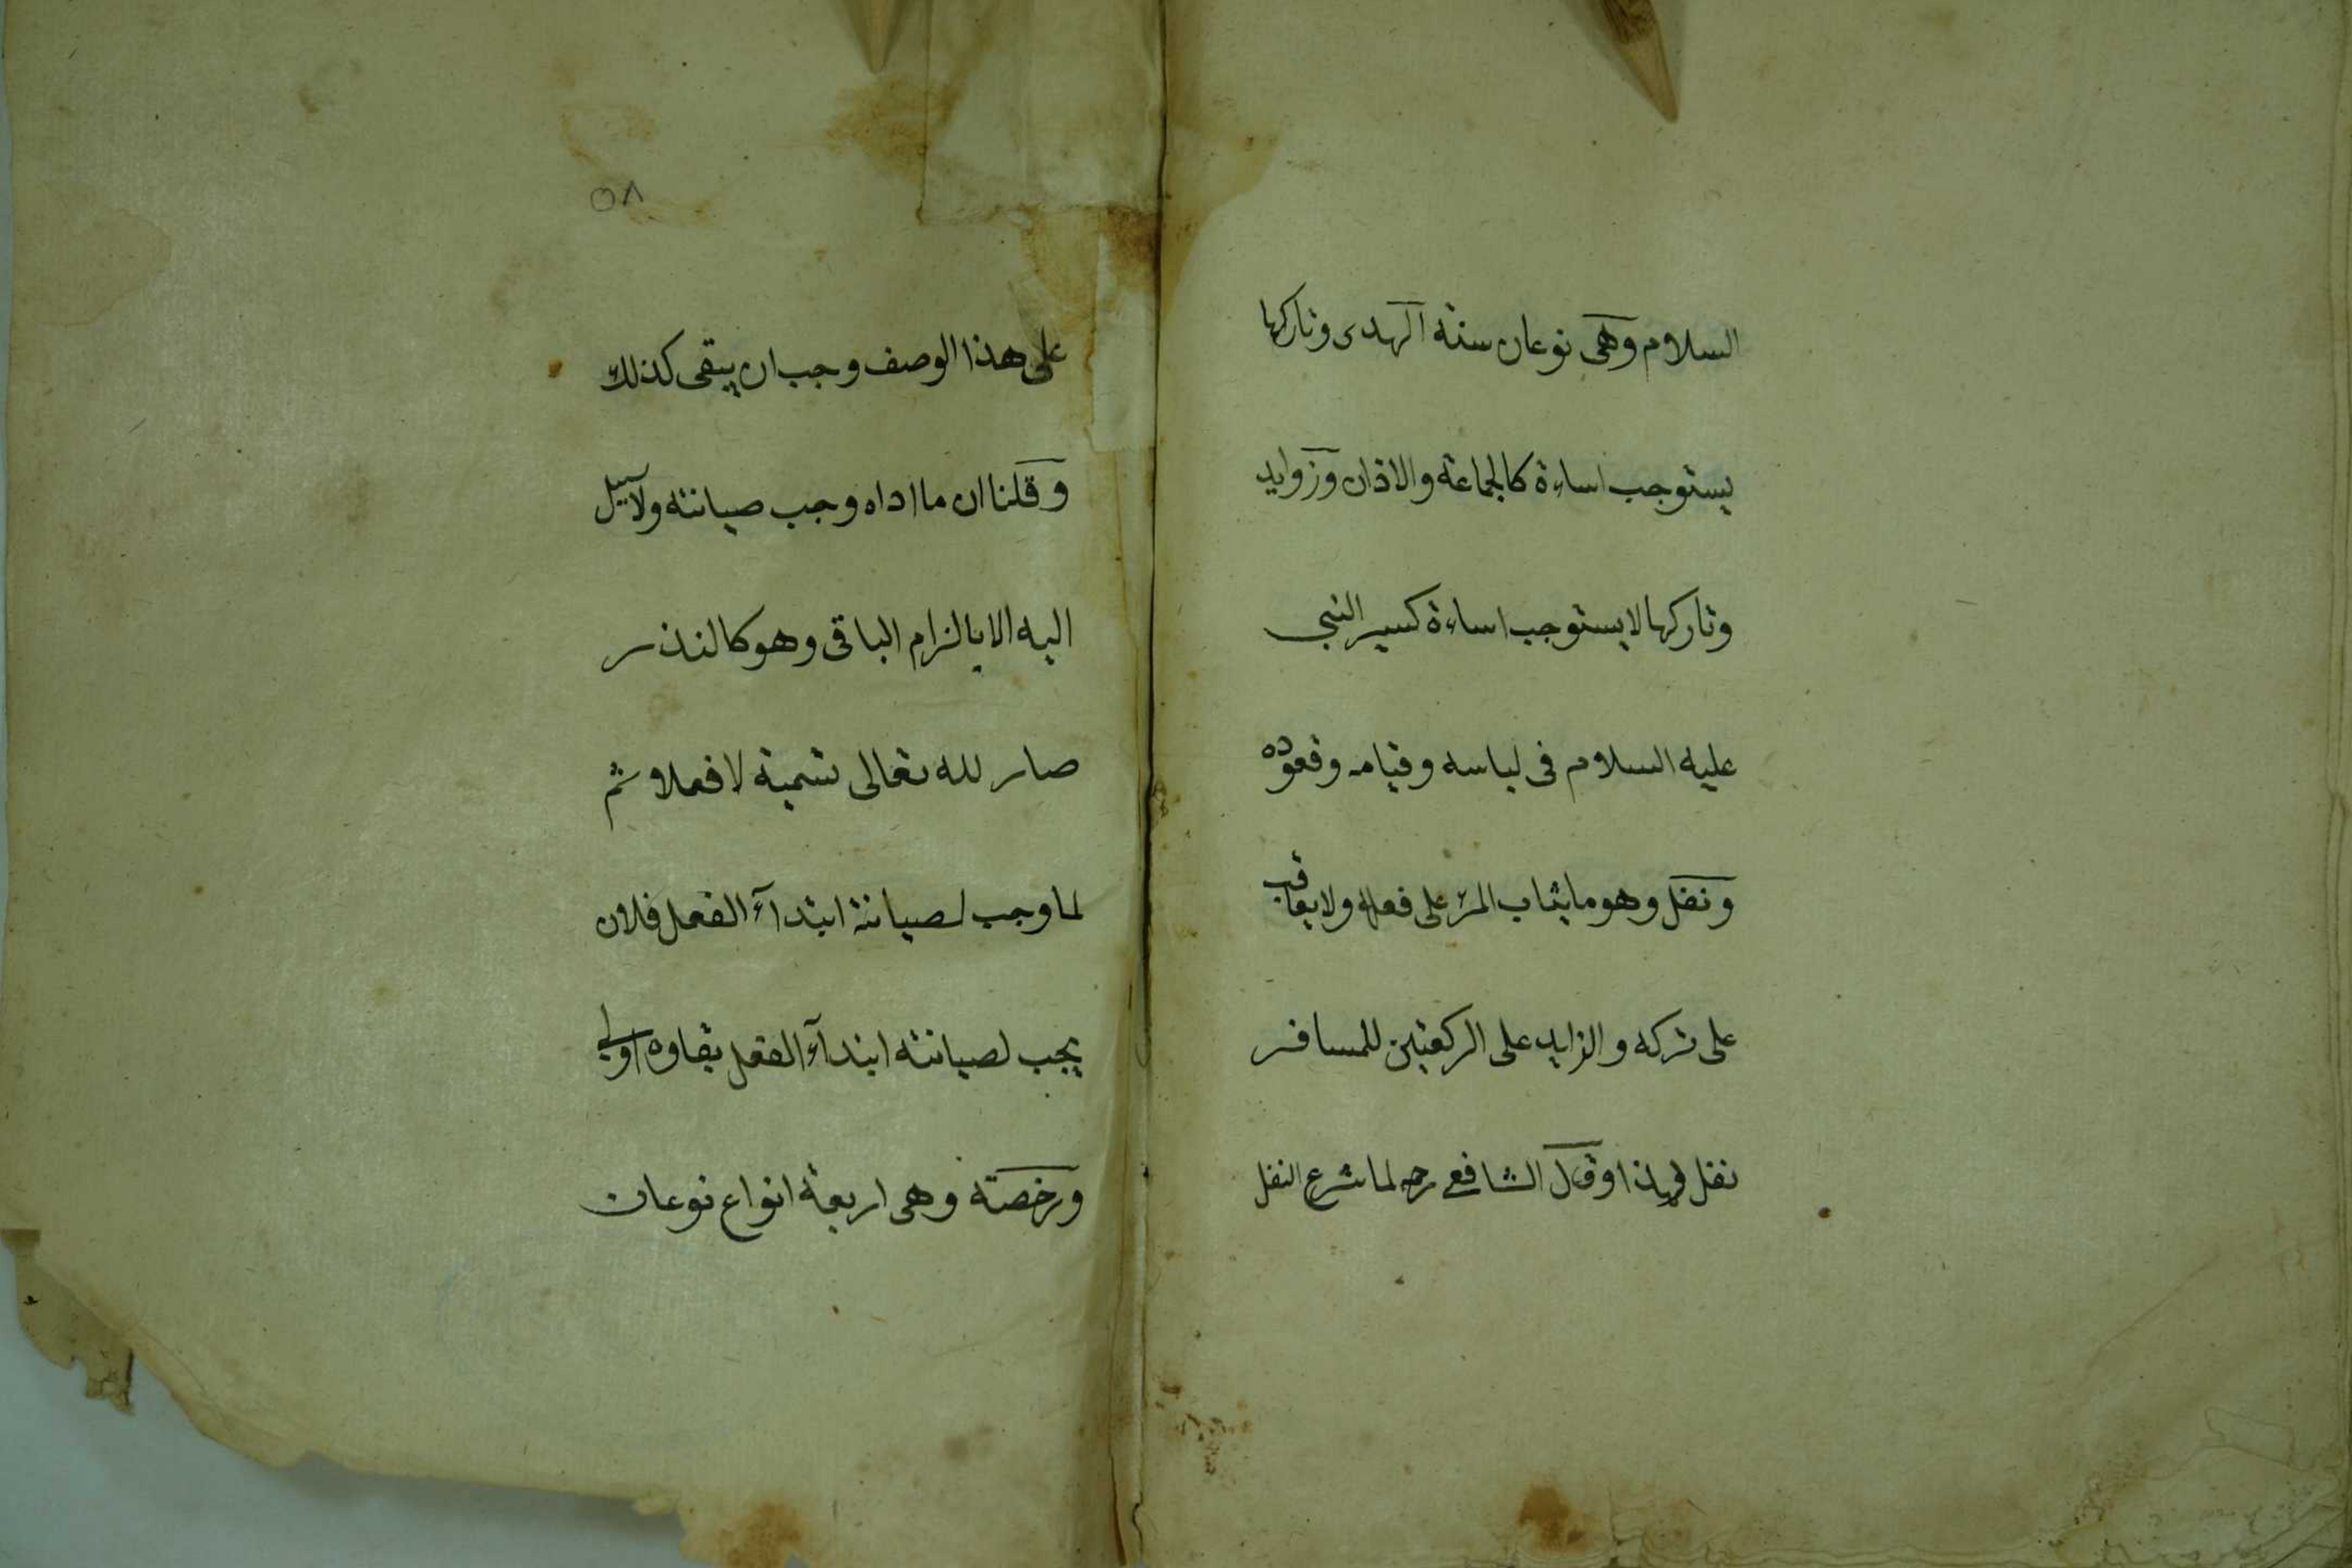 السلام وهى نوعان سنة الهدى وتاركها
يستوجب اساءة كالجماعة والاذان وزوايد
وتاركها لا يستوجب اساءة كسير النبى
عليه السلام فى لباسه وقيامه وقعوده
ونفل وهو ما يثاب المرء على فعله ولا يعاقب
على تركه والزايد على الركعتين للمسافر
نفل لهذا وقال الشافعى رحه لما شرع النفل
٥٨
على هذا الوصف وجب ان يبقى كذلك
وقلنا ان ما اداه وجب صيانته ولا سبيل
اليه الا بالزام الباقى وهو كالنذر
صار لله تعالى تسمية لا فعلا ثم
لما وجب لصيانته ابتدآء الفعل فلان
يجب لصيانته ابتدآء الفعل بقاوه اولى
ورخصة وهى اربعة انواع نوعان